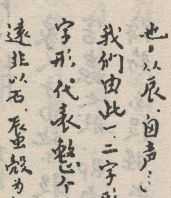 也，从辰，囱声：
我们由此一、二字形
字形代表整个
遠非以石，蜃殼为